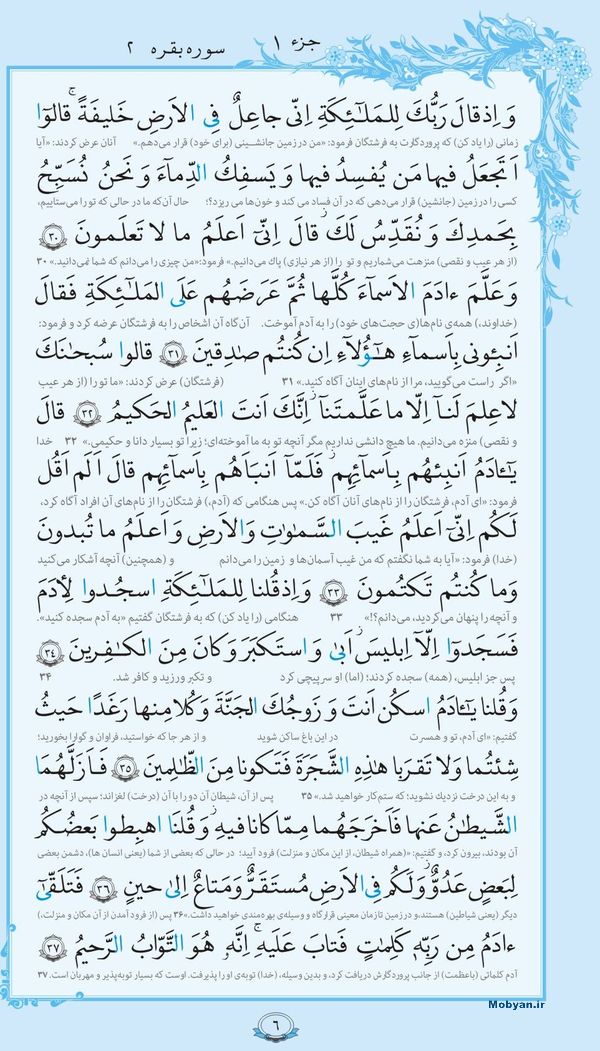 جزء ۱ سوره بقره ۲
وَ اِذ قالَ رَبُّكَ لِلمَلـٰٓئِكَةِ اِنّى جاعِلٌ فِى الاَرضِ خَليفَةً ۚ قالوٓا
زمانی (را یاد کن) که پروردگارت به فرشتگان فرمود: «من در زمین جانشینی (برای خود) قرار می‌دهم.» آنان عرض کردند: «آیا
اَتَجعَلُ فيها مَن يُفسِدُ فيها وَ يَسفِكُ الدِّمآءَ وَ نَحنُ نُسَبِّحُ
کسی را در زمین (جانشین) قرار می‌دهی که در آن فساد می کند و خون‌ها می ریزد؟! حال آن‌که ما در حالی که تو را می‌ستاییم،
بِحَمدِكَ وَ نُقَدِّسُ لَكَ ۖ قالَ اِنّىٓ اَعلَمُ ما لا تَعلَمونَ ﴿۳۰﴾
(از هر عیب و نقصی) منزهت می‌شماریم و تو را (از هر نیازی) پاك می‌دانیم.» فرمود: «من چیزی را می‌دانم که شما نمی‌دانید.» ۳۰
وَ عَلَّمَ ءادَمَ الاَسمآءَ كُلَّها ثُمَّ عَرَضَهُم عَلَى المَلـٰٓئِكَةِ فَقالَ
(خداوند،) همه‌ی نام‌ها(ی حجت‌های خود) را به آدم آموخت. آن‌گاه آن اشخاص را به فرشتگان عرضه کرد و فرمود:
اَنبِئونى بِاَسمآءِ هـٰٓؤُلآءِ اِن كُنتُم صادِقينَ ﴿۳۱﴾ قالوا سُبحـٰنَكَ
«اگر راست می‌گویید، مرا از نام‌های اینان آگاه کنید.» ۳۱ (فرشتگان) عرض کردند: «ما تو را (از هر عیب
لا عِلمَ لَنآ اِلّا ما عَلَّمتَنآ ۖ اِنَّكَ اَنتَ العَليمُ الحَكيمُ ﴿۳۲﴾ قالَ
و نقصی) منزه می‌دانیم. ما هیچ دانشی نداریم مگر آنچه تو به ما آموخته‌ای؛ زیرا تو بسیار دانا و حکیمی.» ۳۲ خدا
يـٰٓـٔادَمُ اَنبِئهُم بِاَسمآئِهِم ۖ فَلَمّآ اَنبَاَهُم بِاَسمآئِهِم قالَ اَلَم اَقُل
فرمود: «ای آدم، فرشتگان را از نام‌های آنان آگاه کن.» پس هنگامی که (آدم،) فرشتگان را از نام‌های آن افراد آگاه کرد،
لَكُم اِنّىٓ اَعلَمُ غَيبَ السَّمـٰوٰتِ وَالاَرضِ وَ اَعلَمُ ما تُبدونَ
(خدا) فرمود: «آیا به شما نگفتم که من غیب آسمان‌ها و زمین را می‌دانم و (همچنین) آنچه آشکار می‌کنید
وَما كُنتُم تَكتُمونَ ﴿۳۳﴾ وَ اِذ قُلنا لِلمَلـٰٓئِكَةِ اسجُدوا لِأدَمَ
و آنچه را پنهان می‌کردید، می‌دانم؟!» ۳۳ هنگامی (را یاد کن) که به فرشتگان گفتیم «به آدم سجده کنید».
فَسَجَدوٓا اِلّآ اِبليسَ اَبىٰ وَ استَكبَرَ وَ كانَ مِنَ الكـٰفِرينَ ﴿۳۴﴾
پس جز ابلیس، (همه) سجده کردند؛ (اما) او سرپیچی کرد و تکبر ورزید و کافر شد. ۳۴
وَ قُلنا يـٰٓـٔادَمُ اسكُن اَنتَ وَ زَوجُكَ الجَنَّةَ وَ كُلا مِنها رَغَدًا حَيثُ
گفتیم: «ای آدم، تو و همسرت در این باغ ساکن شوید و از هر جا که خواستید، فراوان و گوارا بخورید؛
شِئتُما وَلا تَقرَبا هـٰذِهِ الشَّجَرَةَ فَتَكونا مِنَ الظّالِمينَ ﴿۳۵﴾ فَاَزَلَّهُمَا
و به این درخت نزدیك نشوید؛ که ستمکار خواهید شد.» ۳۵ پس از آن، شیطان آن دو را با آن (درخت) لغزاند؛ سپس از آنچه در
الشَّيطـٰنُ عَنها فَاَخرَجَهُما مِمّا كانا فيهِ ۖ وَ قُلنَا اهبِطوا بَعضُكُم
آن بودند، بیرون کرد، و گفتیم: «(همراه شیطان، از این مکان و منزلت) فرود آیید؛ در حالی که بعضی از شما (یعنی انسان ها)، دشمن بعضی
لِبَعضٍ عَدُوٌّ ۖ وَ لَكُم فِى الاَرضِ مُستَقَرٌّ وَ مَتاعٌ اِلىٰ حينٍ ﴿۳۶﴾ فَتَلَقّىٰٓ
دیگر (یعنی شیاطین) هستند، و در زمین تا زمان معینی قرارگاه و وسیله‌ی بهره‌مندی خواهید داشت.» ۳۶ پس (از فرود آمدن از آن مکان و منزلت،)
ءادَمُ مِن رَبِّهٖ كَلِماتٍ فَتابَ عَلَيهِ ۚ اِنَّهٗ هُوَ التَّوّابُ الرَّحيمُ ﴿۳۷﴾
آدم کلماتی (باعظمت) از جانب پروردگارش دریافت کرد، و بدین وسیله، (خدا) توبه‌ی او را پذیرفت. اوست که بسیار توبه‌پذیر و مهربان است. ۳۷
Mobyan.ir
۶